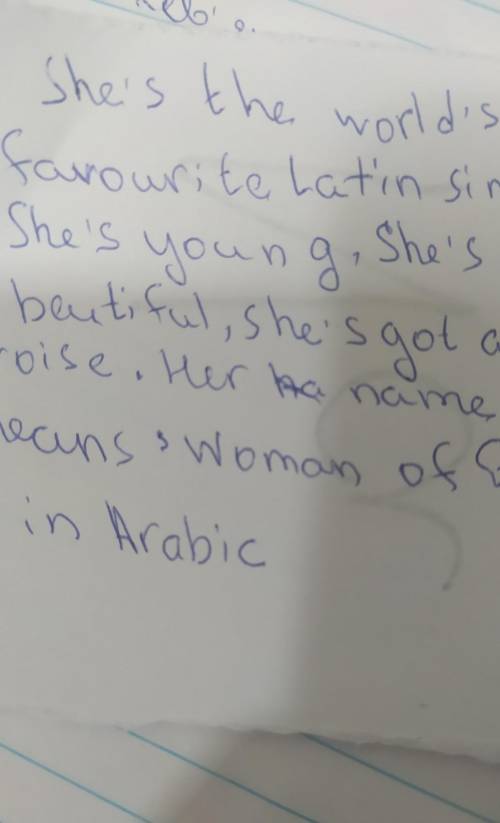 She's the world's
favourite Latin
She's young, She's
beutiful, she's got a
Her name
of
woman of
in Arabic